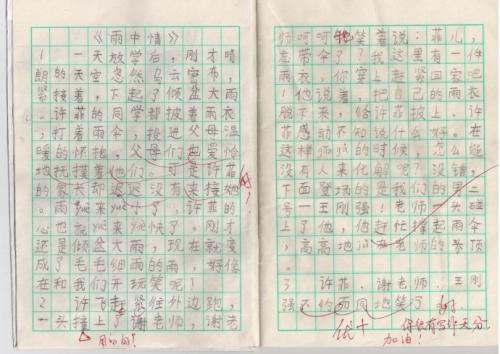 《雨中情》
1 一天放学后，刚才晴
朗的天空忽然乌云密布，
紧接着，下起了倾盆大雨
。许菲的同学都披着雨衣
；打着雨伞，投进父母温
暖的怀抱，父母们也爱怜
地抚摸着他们。可是许菲
的家长却迟迟没有来接她
。雨越来越小了，许菲的
心也
快了。刚才
还是倾盆大雨，现在就变
成了毛毛细雨的雨，好像
在和我们开玩笑呢！
2 许飞赶紧往外边跑，
一头撞上了谢老师，谢老
用的对！
师呵呵地笑着说：菲儿，
忘带伞了？我这里有一件
雨衣，你穿上赶紧回家吧
！他说着，把自己的雨衣
脱下来，给许菲披上。许
菲感动不知说什么好。在
这样
的时候，怎么能
没有人来化解呢？没错，
下面登场的是我们的男二
号—王刚强！老师一头碰
上了他，他赶忙撑起雨伞
，高高地
老师的头顶
。
3 许菲、谢老师、王刚
强不约而同地笑了。
优+
好
你很有写作天分！
加油！